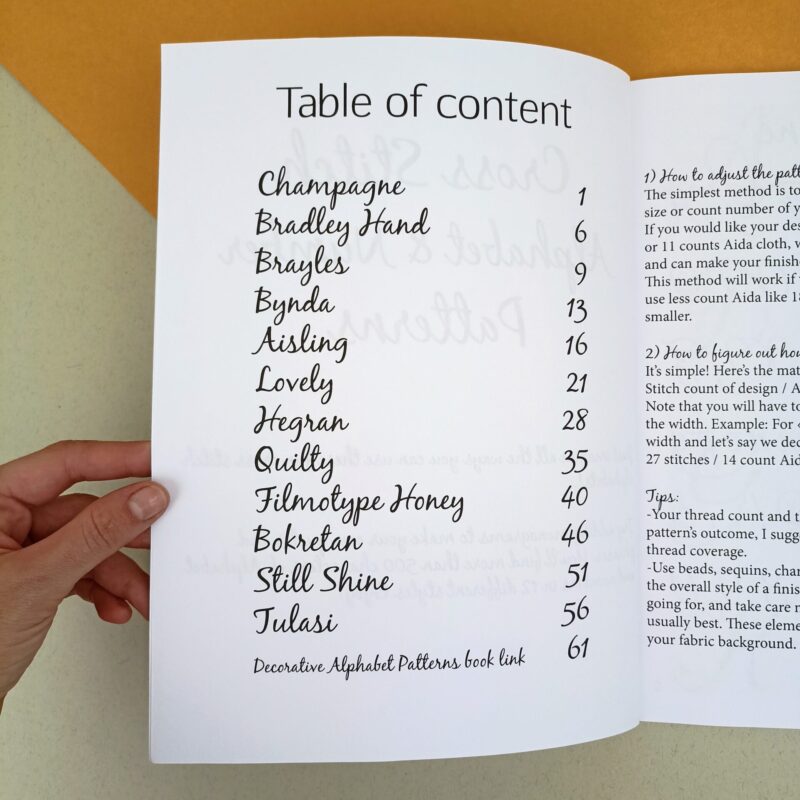 Table of content
Champagne 1
Bradley Hand 6
Brayles 9
Bynda 13
Aisling 16
Lovely 21
Hegran 28
Quilty 35
Filmotype Honey 40
Bokretan 46
Still Shine 51
Tulasi 56
Decorative Alphabet Patterns book link 61
1) How to adjust the
The simplest method is to
size or count number of
If you would like your
or 11 counts Aida cloth,
and can make your
This method will work if
use less count Aida like
smaller.
2) How to figure out
It's simple! Here's the
Stitch count of design /
Note that you will have to
the width. Example: For
width and let's say we
27 stitches / 14 count
Tips:
-Your thread count and
pattern's outcome, I
thread coverage.
-Use beads, sequins,
the overall style of a
going for, and take care
usually best. These
your fabric background.
Cross Stitch
Alphabet & Number
Patterns